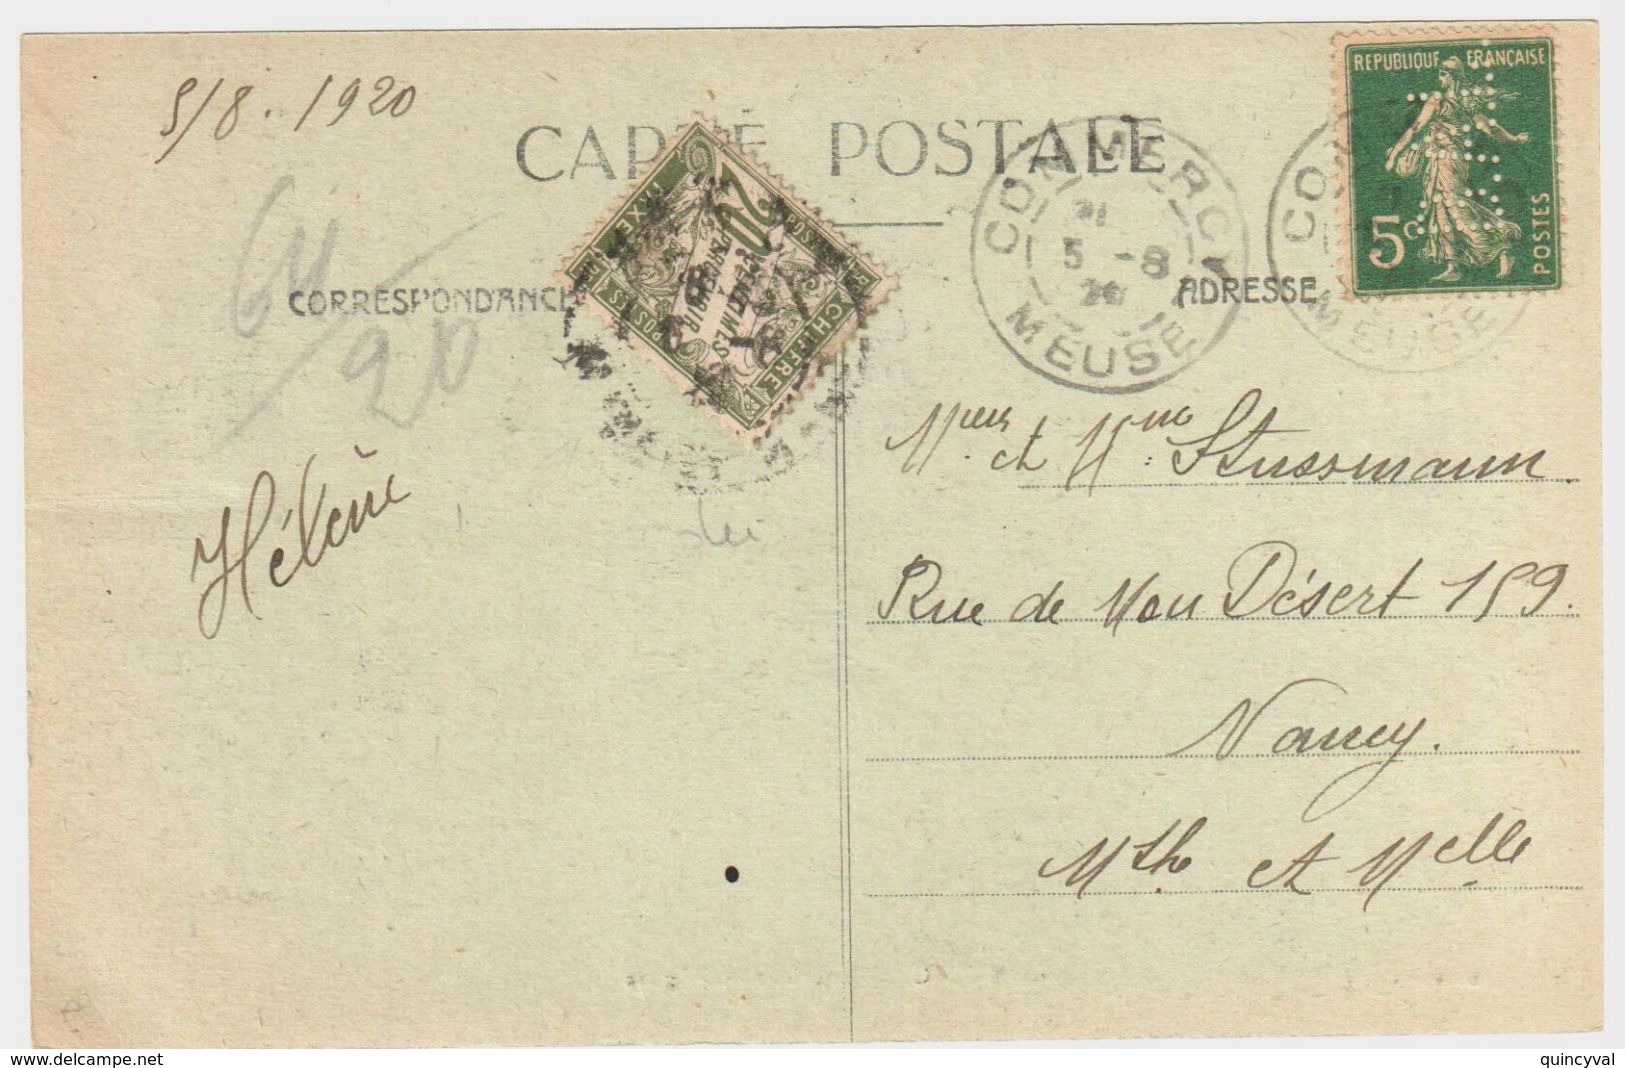 5/8. 1920
CARTE POSTALE
REPUBLIQUE FRANÇAISE
5c
POSTES
COMMERCY
21
5 -8
20
MEUSE
CO
MEUSE
20
CENTIMES
À PERCEVOIR
CHIFFRE
TAXE
POSTES
CORRESPONDANCE
ADRESSE
20
Hélène
Mr. et Mme Stussmann.
Rue de Mon Désert 159.
Nancy.
Mthe et Melle
www.delcampe.net
quincyval